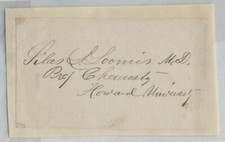 Silas L Loomis M.D.
Prof Chemistry
Howard University